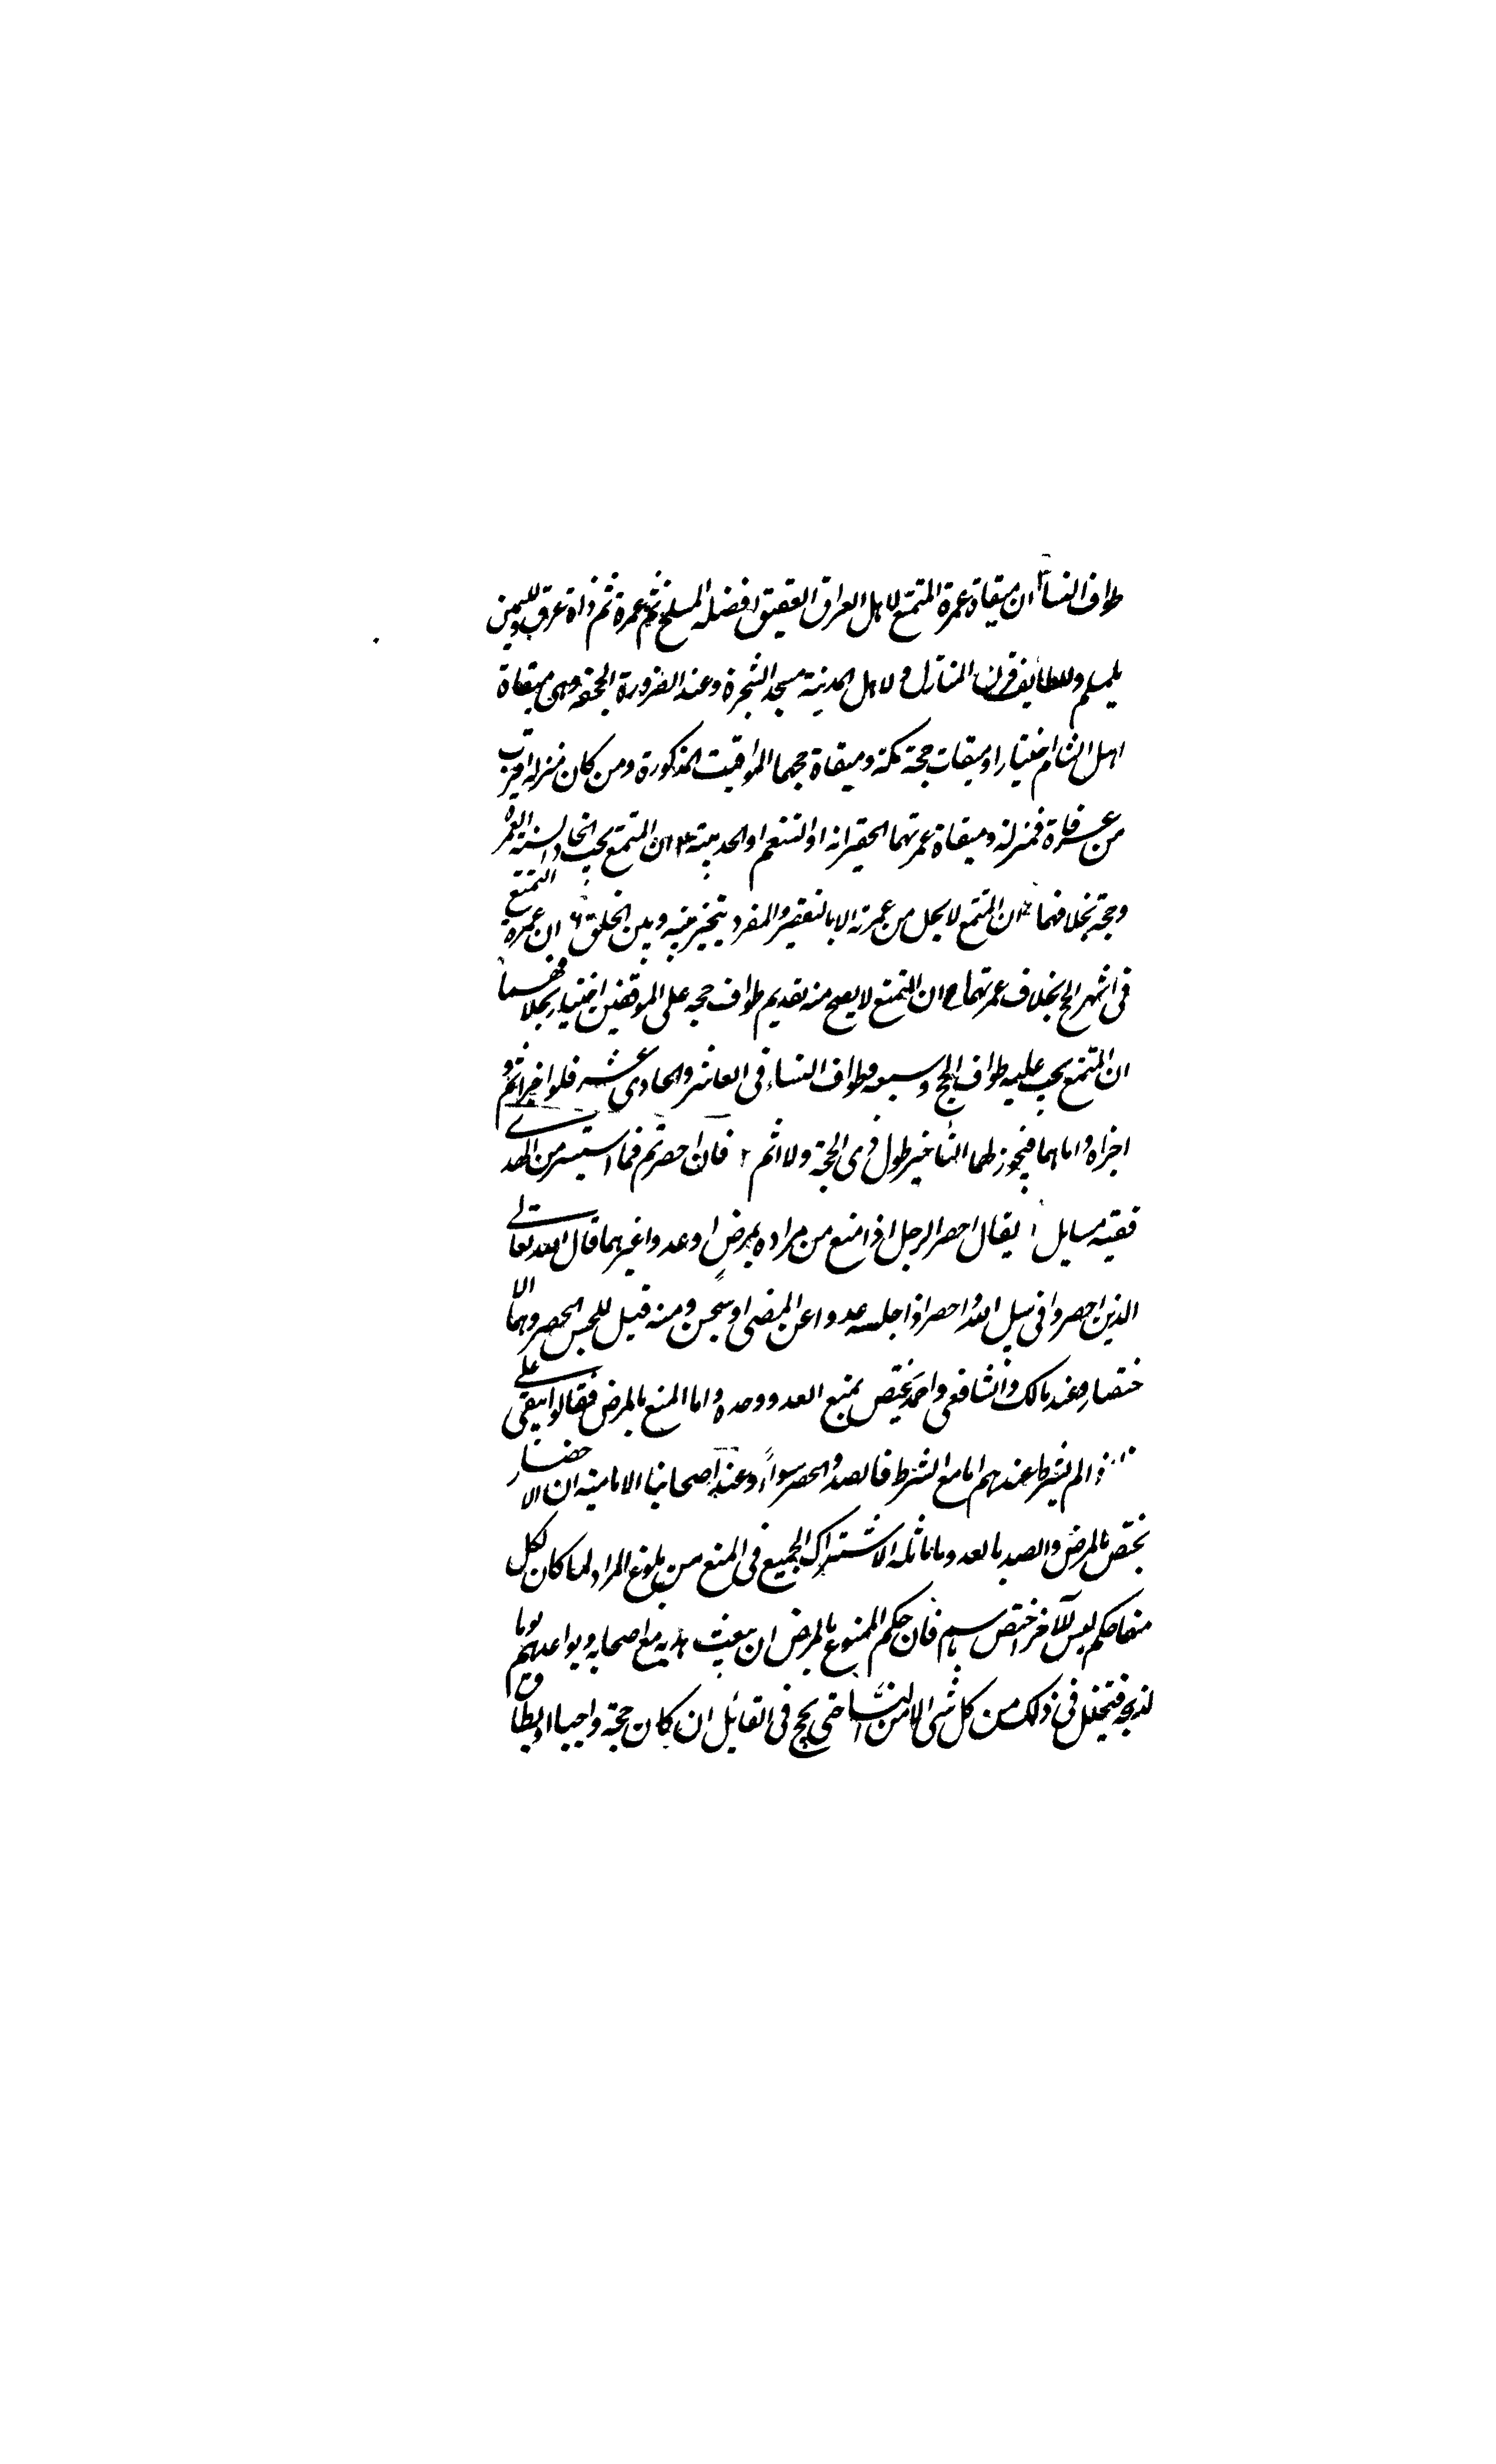 طواف النسآء ان ميقاة عمرة المتمتع لاهل العراق العقيق افضله المسلخ ثم غمرة ثم ذاة عرق ولليمن
يلملم وللطايف قرن المنازل و لاهل المدينة مسجد الشجرة وعند الضرورة الجحفة وهى ميقاة
اهل الشام اختيارا وميقات حجة مكة وميقاة حجهما المواقيت المذكورة ومن كان منزله اقرب
من عرفة فمنزله وميقاة عمرتهما الجعرانه او التنعيم او الحديبية ان المتمتع يجب اتحاد السنة العمرة
وحجة بخلافهما ان المتمتع لا يحل من عمرته الا بالتقصير والمفرد يتخير بينه وبين الحلق ٦ ان عمرة التمتع
فى اشهر الحج بخلاف عمرتهما ان المتمتع لا يصح منه تقديم طواف حجه على الموقفين اختيارا بخلافهما
ان المتمتع يجب عليه طواف الحج وسعيه وطواف النساء فى العاشر والحادى عشر فلو اخر اثم و
اجزاه واما هما فيجوز لهما التأخير طول ذى الحجة ولا اثم فان احصرتم فما استيسر من الهدى
فقيه مسايل ١ يقال احصر الرجل اذا منع من مراده بمرض او عدو او غيرهما قال الله تعالى
الذين احصروا فى سبيل الله واحصر اذا حبسه عدو اعن المضى او سجن ومنه قيل للحبس الحصر وهما الا
ختصار وعند مالك والشافعى واحمد يختص بمنع العدو وحده واما المنع بالمرض فقالوا يبقى على
اذا لم يشترط عندهم اما مع الشرط فالصد والحصر سواء وعند اصحابنا الامامية ان الا حصار
يختص بالمرض والصد بالعدو وما ماثله الاشتراك الجميع فى المنع من بلوغ المراد لما كان لكل
منهما حكم ليس للآخر اختص باسم فان حكم الممنوع بالمرض ان يبعث هديه مع اصحابه ويواعدهم يوما
لذبحه فيتحلل فى ذلك من كل شى الا من النساء حتى يحج فى القابل ان كان حجة واجبا او يطاف